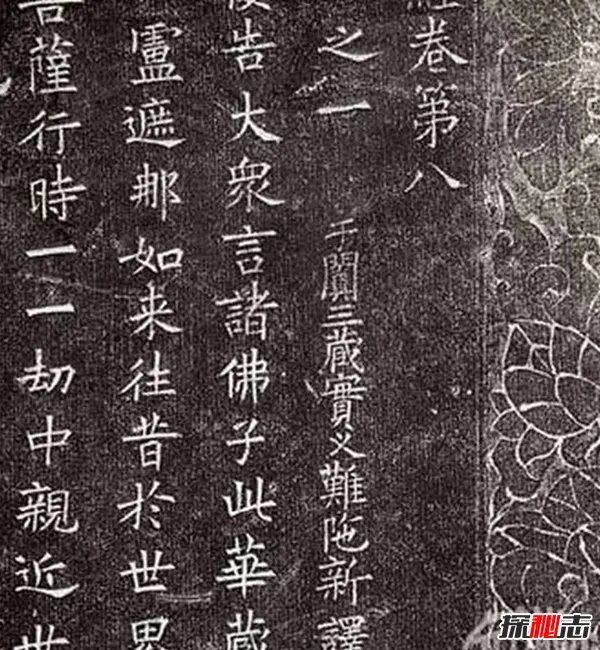 經卷第八
之一 于闐三藏實叉難陁新譯
告大衆言諸佛子此華藏
盧遮那如来往昔於世界
菩薩行時一一劫中親近世
探秘志